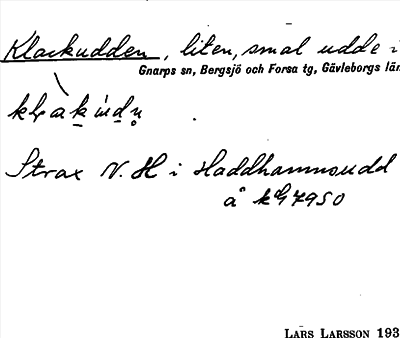 Klackudden, liten, smal udde i
Gnarps sn, Bergsjö och Forsa tg, Gävleborgs län
Strax N. H i Haddhamnsudd
å kg 7950
LARS LARSSON 193